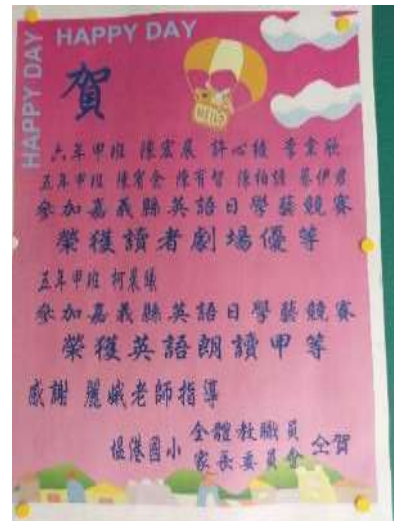 HAPPY DAY
HAPPY DAY
賀
HELLO
六年甲班 陳宏晨 許心綾
五年甲班 陳宥 陳柏 蔡伊君
參加嘉義縣英語日學藝競賽
榮獲讀者劇場優等
五年甲班 柯晨曦
參加嘉義縣英語日學藝競賽
榮獲英語朗讀甲等
感謝 麗娥老師指導
塭港國小 全體教職員
家長委員會 仝賀